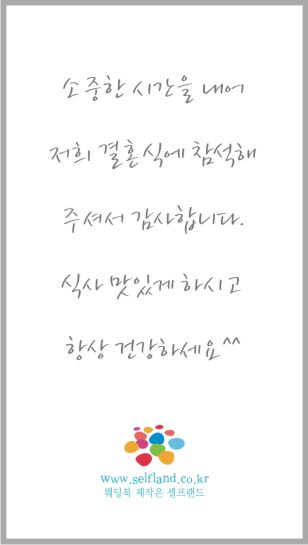 소중한 시간을 내어
저희 결혼식에 참석해
주셔서 감사합니다.
식사 맛있게 하시고
항상 건강하세요^^
www.selfland.co.kr
웨딩북 제작은 셀프랜드